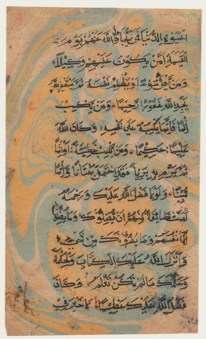 الحيوة الدنيا فمن يجادل الله عنهم يوم
القيمة ام من يكون عليهم وكيلا
ومن يعمل سوءا او يظلم نفسه ثم يستغفر الله
يجد الله غفورا رحيما ومن يكسب
اثما فانما يكسبه على نفسه وكان الله
عليما حكيما ومن يكسب خطيئة او اثما
ثم يرم به بريئا فقد احتمل بهتانا واثما
مبينا ولولا فضل الله عليك ورحمته
لهمت طائفة منهم ان يضلوك وما يضلون
الا انفسهم وما يضرونك من شيء
وانزل الله عليك الكتاب والحكمة
وعلمك ما لم تكن تعلم وكان
فضل الله عليك عظيما لا خير في